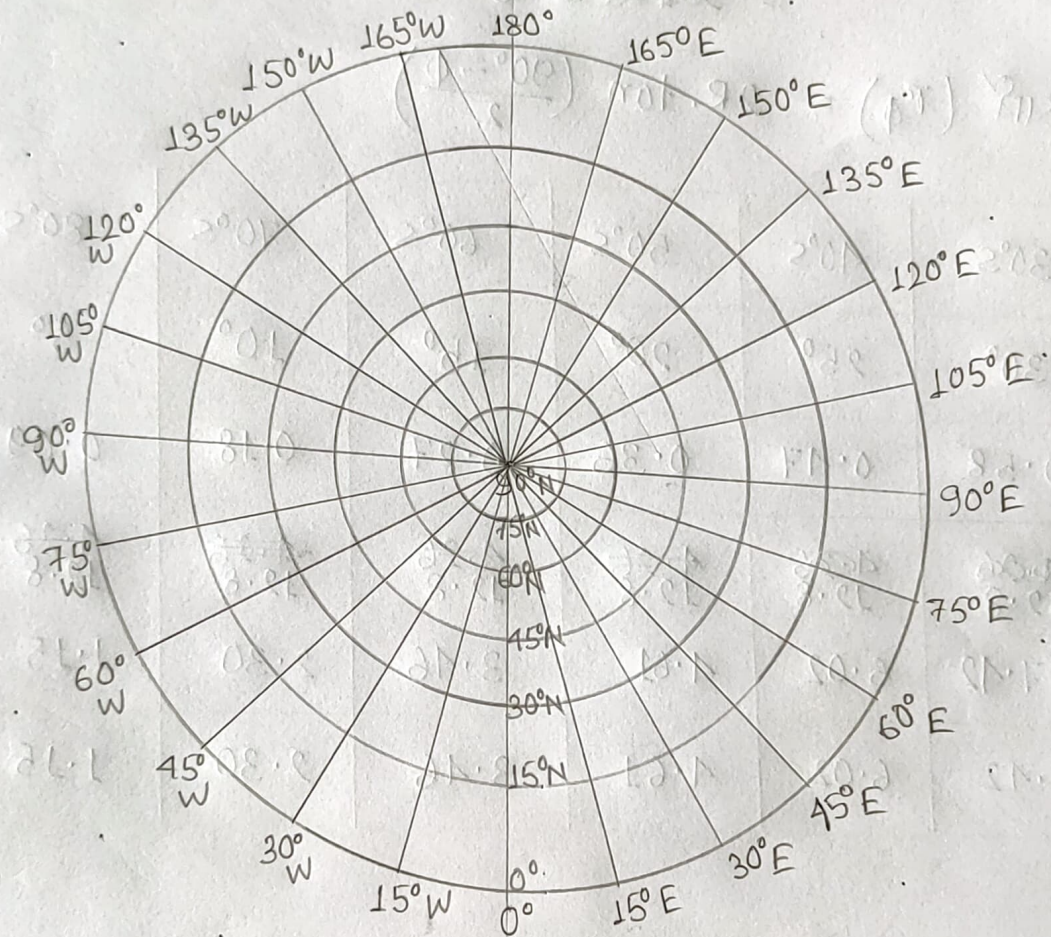 180°
165°E
150°E
135°E
120°E
105°E
90°E
75°E
60°E
45°E
30°E
15°E
0°
15°W
30°
W
45°
W
60°
W
75°
W
90°
W
105°
W
120°
W
135°W
150°W
165°W
90°N
75N
60N
45°N
30°N
15°N
0°